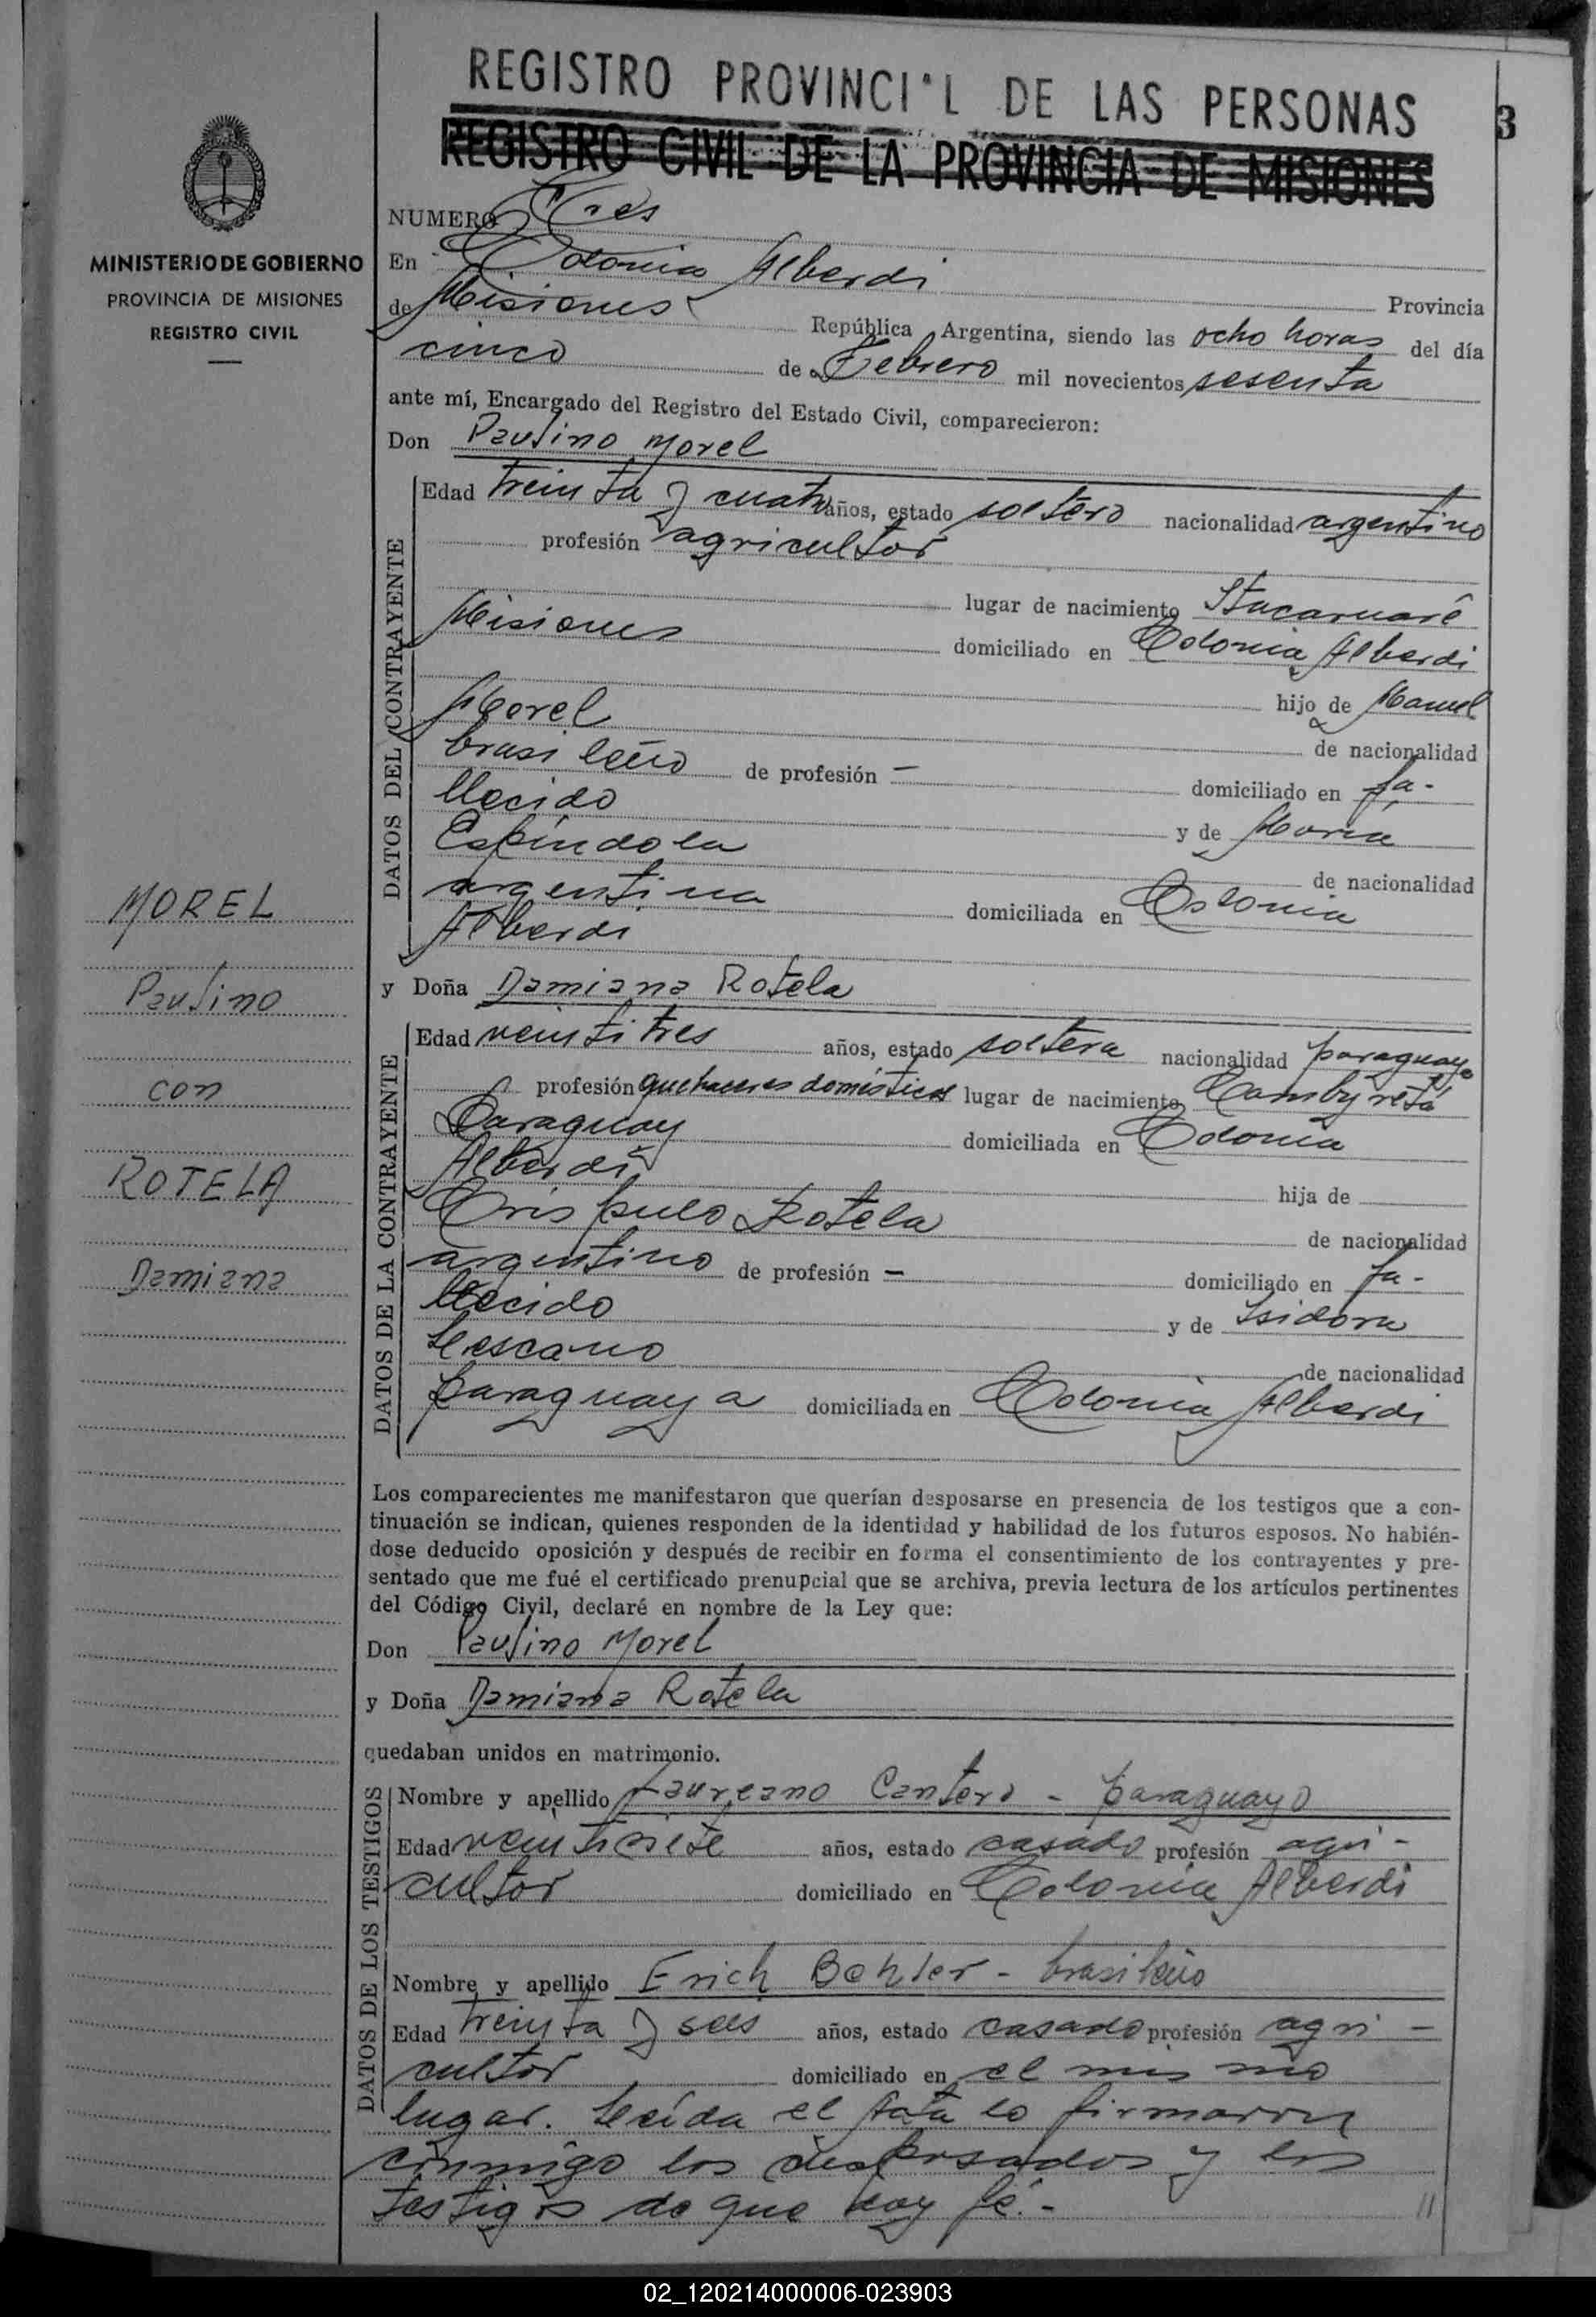 REGISTRO PROVINCI L DE LAS PERSONAS
3
REGISTRO CIVIL DE LA PROVINCIA DE MISIONES
MINISTERIO DE GOBIERNO
PROVINCIA DE MISIONES
REGISTRO CIVIL
NUMERO Tres
En Colonia Alberdi Provincia
de Misiones República Argentina, siendo las ocho horas del día
cinco de Febrero mil novecientos sesenta
ante mí, Encargado del Registro del Estado Civil, comparecieron:
Don Paulino Morel
DATOS DEL CONTRAYENTE
Edad treinta y cuatro años, estado soltero nacionalidad argentino
profesión agricultor
lugar de nacimiento Itacaruaré
Misiones domiciliado en Colonia Alberdi
hijo de Manuel
Morel de nacionalidad
brasileño de profesión — domiciliado en fa-
llecido y de María
Espíndola de nacionalidad
argentina domiciliada en Colonia
Alberdi
MOREL
Paulino
con
ROTELA
Damiana
y Doña Damiana Rotela
DATOS DE LA CONTRAYENTE
Edad veintitres años, estado soltera nacionalidad paraguaya
profesión quehaceres domésticos lugar de nacimiento Cambyretá
Paraguay domiciliada en Colonia
Alberdi hija de
Crispulo Rotela de nacionalidad
argentino de profesión — domiciliado en fa-
llecido y de Isidora
Lescano de nacionalidad
paraguaya domiciliada en Colonia Alberdi
Los comparecientes me manifestaron que querían desposarse en presencia de los testigos que a con-
tinuación se indican, quienes responden de la identidad y habilidad de los futuros esposos. No habién-
dose deducido oposición y después de recibir en forma el consentimiento de los contrayentes y pre-
sentado que me fué el certificado prenupcial que se archiva, previa lectura de los artículos pertinentes
del Código Civil, declaré en nombre de la Ley que:
Don Paulino Morel
y Doña Damiana Rotela
quedaban unidos en matrimonio.
DATOS DE LOS TESTIGOS
Nombre y apellido Laureano Cantero - paraguayo
Edad veintisiete años, estado casado profesión agri-
cultor domiciliado en Colonia Alberdi
Nombre y apellido Erich Bohler - brasileño
Edad treinta y seis años, estado casado profesión agri-
cultor domiciliado en el mismo
lugar. Leída el acta lo firmaron
conmigo los desposados y los
testigos de que doy fé.- //
02_120214000006-023903